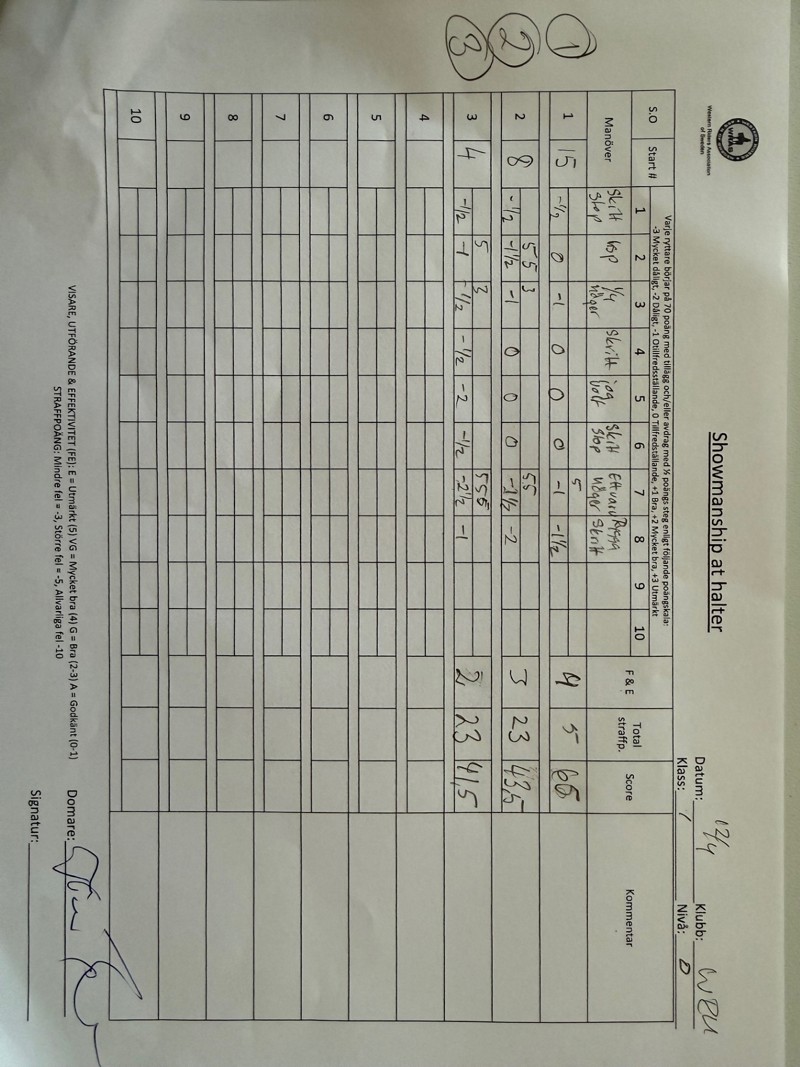 WRAS
Western Riders Association
of Sweden
Showmanship at halter
Datum: 12/4 Klubb: WRU
Klass: 1 Nivå: D
Varje ryttare börjar på 70 poäng med tillägg och/eller avdrag med ½ poängs steg enligt följande poängskala:
-3 Mycket dåligt, -2 Dåligt, -1 Otillfredsställande, 0 Tillfredsställande, +1 Bra, +2 Mycket bra, +3 Utmärkt
S.O Start # 1 2 3 4 5 6 7 8 9 10 F & E Total straffp. Score Kommentar
Manöver Skritt stop Insp 1/4 höger Skritt jog volt Skritt stop Ett varv höger Rygg Skritt
5
1 15 -1/2 0 -1 0 0 0 -1 -1 1/2 4 5 65
55 3 55
2 8 -1/2 -1 1/2 -1 0 0 0 -1 1/2 -2 3 23 43,5
5 3 555
3 4 -1/2 -1 -1/2 -1/2 -2 -1/2 -2 1/2 -1 2 23 41,5
4
5
6
7
8
9
10
1
2
3
VISARE, UTFÖRANDE & EFFEKTIVITET (FE): E = Utmärkt (5) VG = Mycket bra (4) G = Bra (2-3) A = Godkänt (0-1)
STRAFFPOÄNG: Mindre fel = -3, Större fel = -5, Allvarliga fel -10
Domare:
Signatur: